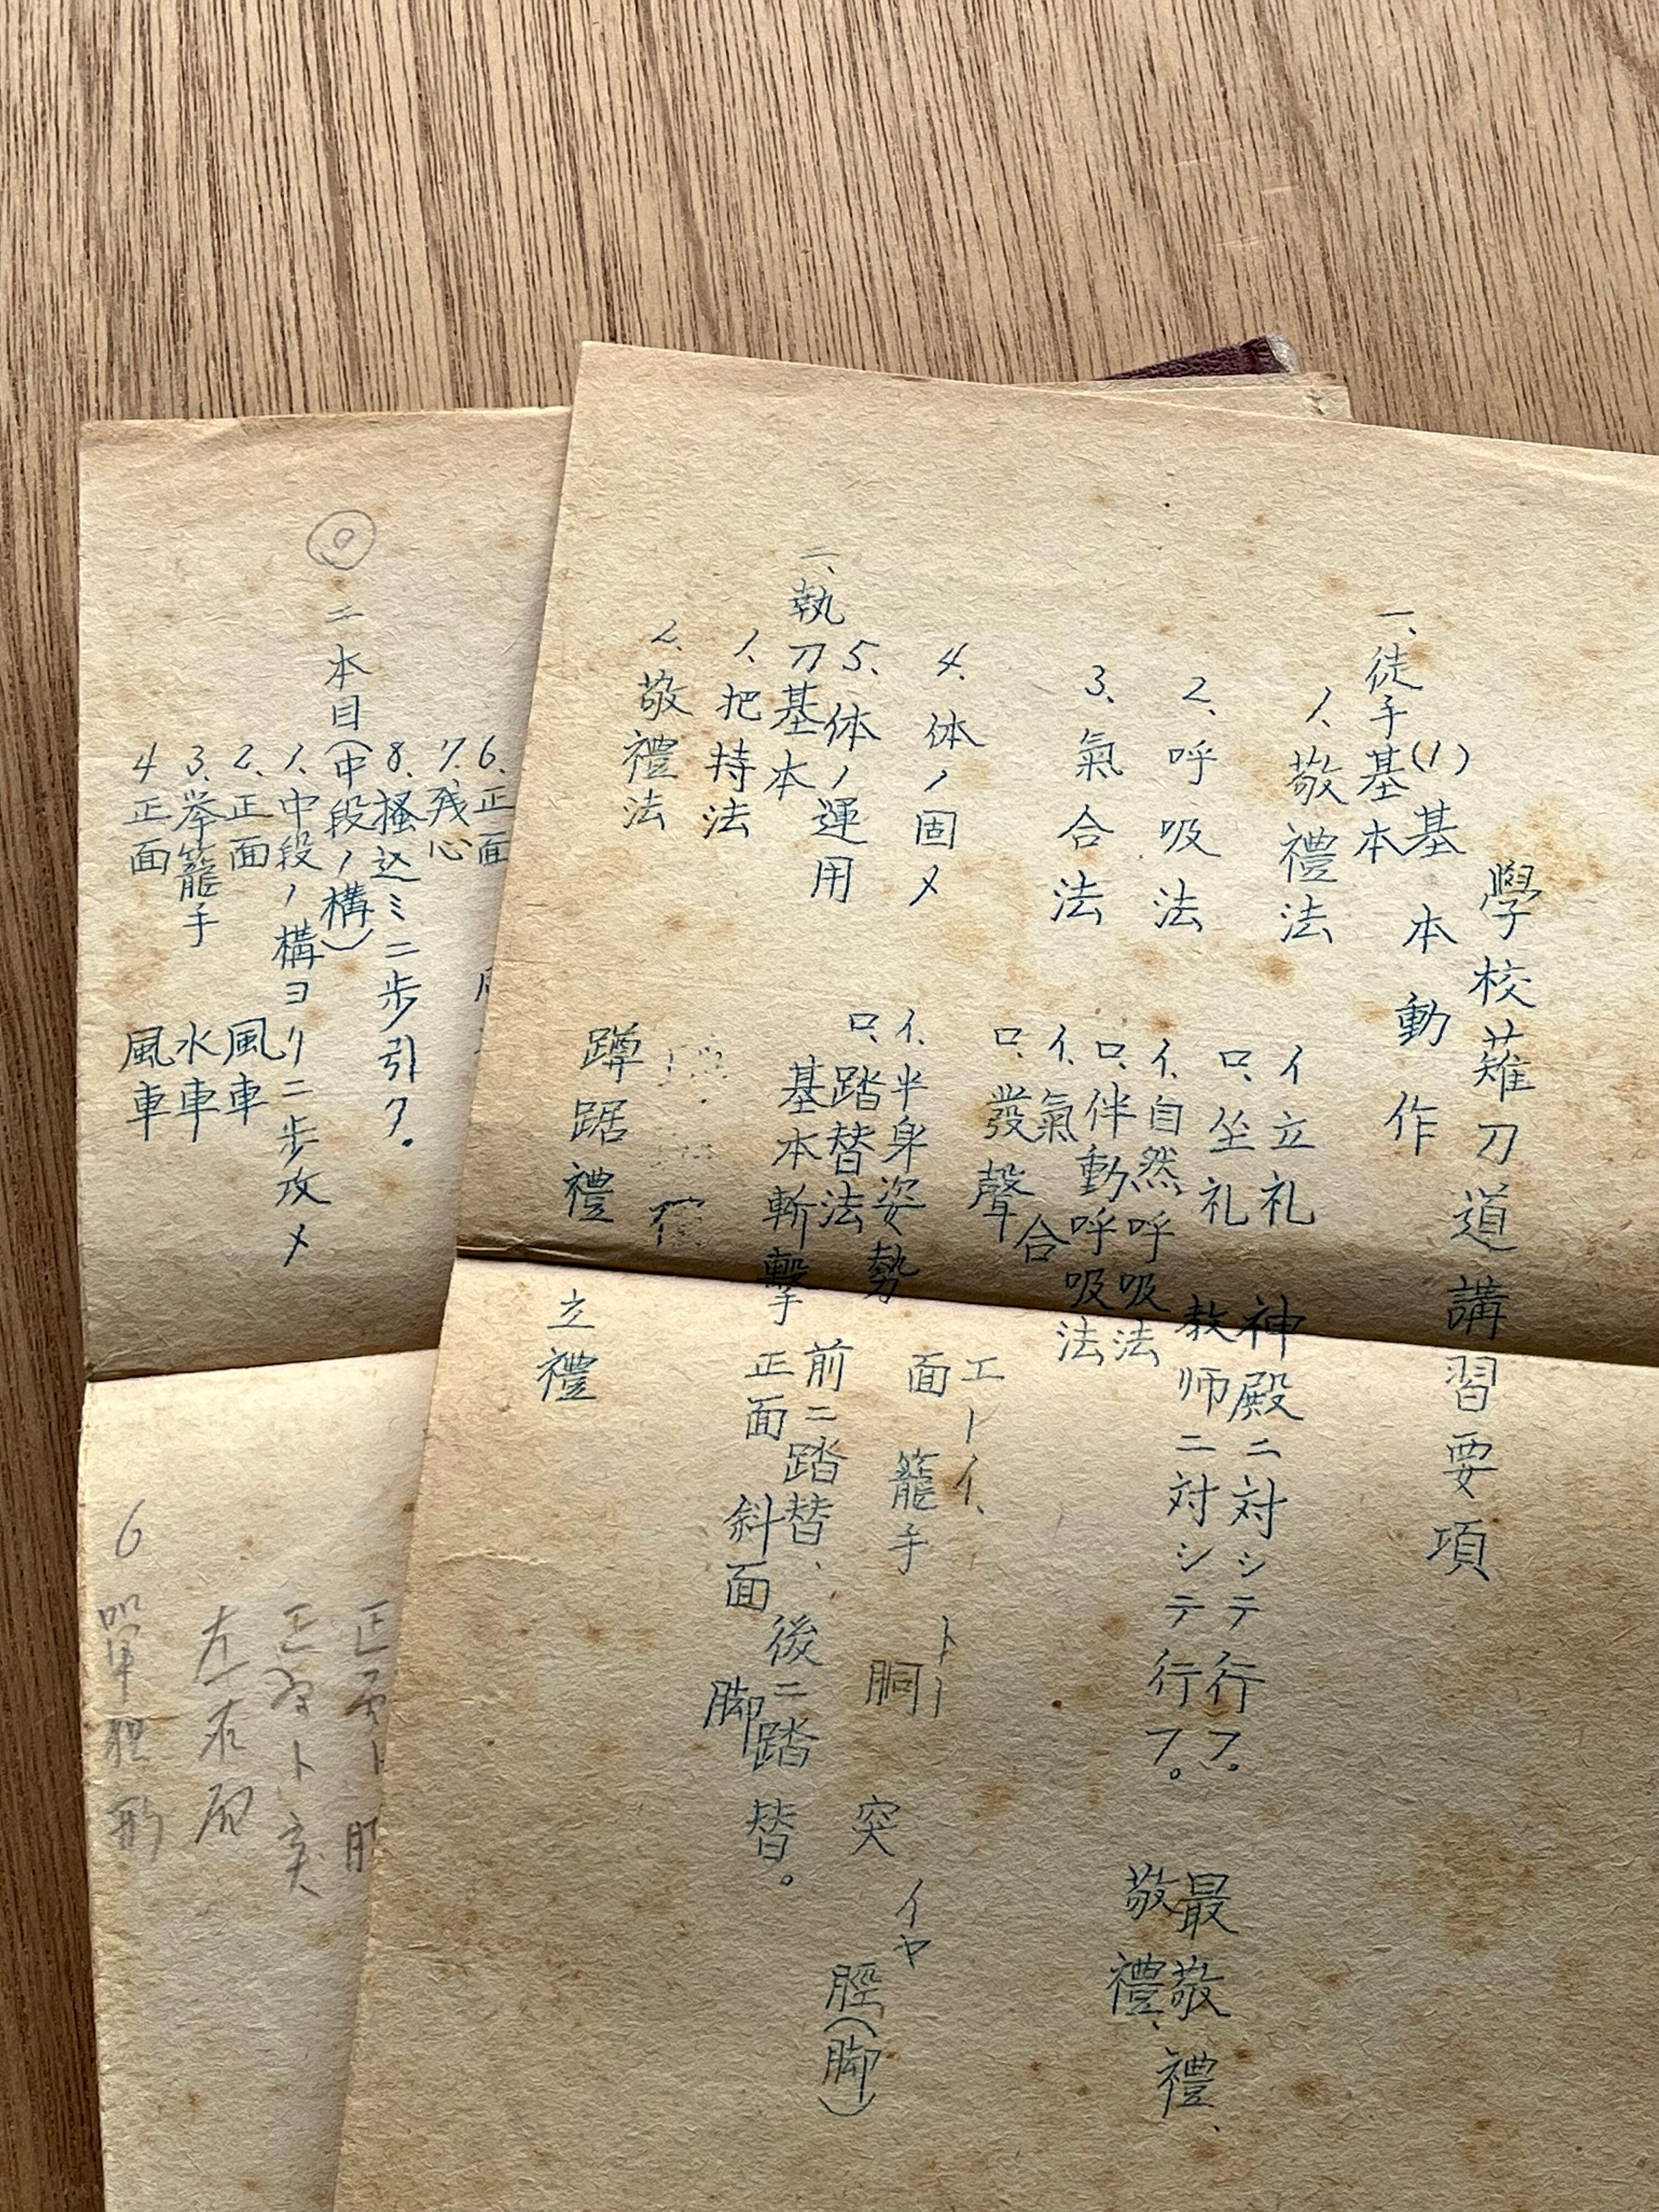 學校薙刀道講習要項
(1)基本動作
一、徒手基本
1、敬禮法
イ立礼 神殿ニ対シテ行フ。 最敬禮、
ロ、坐礼 教师ニ対シテ行フ。 敬禮、
2、呼吸法
イ、自然呼吸法
ロ、伴動呼吸法
3、氣合法
イ、氣合
ロ、發聲
エーイ、 トー イヤ
面 籠手 胴 突 脛(脚)
4、体ノ固メ
イ、半身姿勢
5、体ノ運用
ロ、踏替法 前ニ踏替、後ニ踏替。
基本斬撃 正面 斜面 脚
二、執刀基本
1、把持法
2、敬禮法
蹲踞禮 立禮
6、正面
7、残心
8、搔込ミ二歩引ク。
◎ 二本目(中段ノ構)
1、中段ノ構ヨリ二歩攻メ
2、正面 風車
3、挙籠手 水車
4正面 風車
正面ト
正面ト突
左右面
6